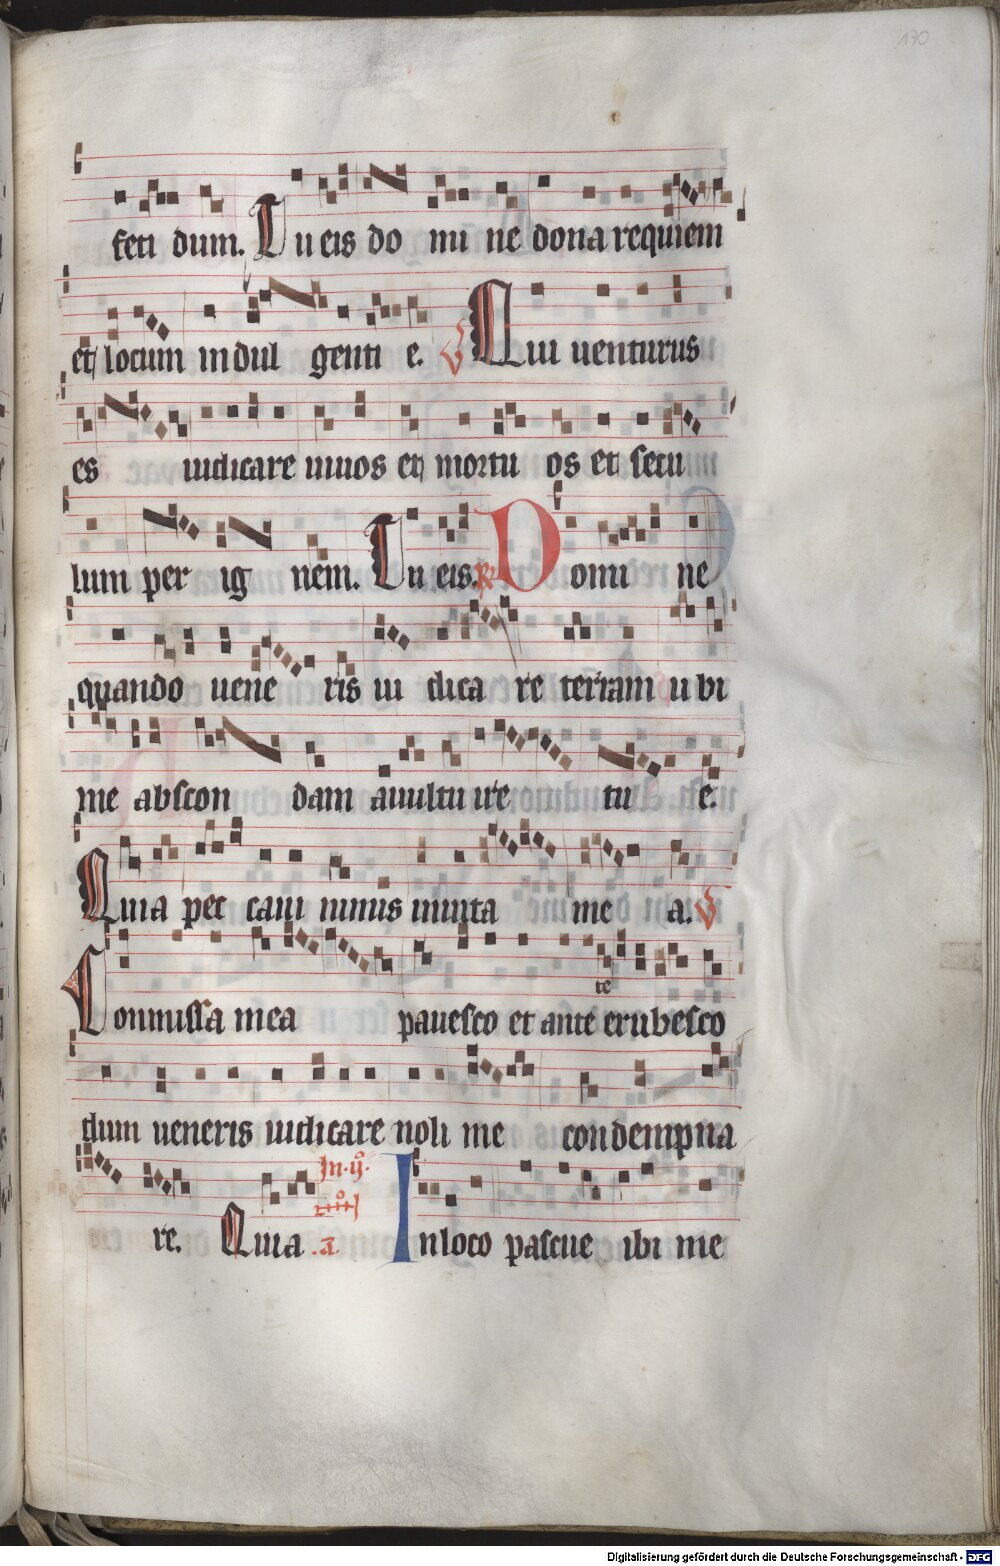 170
feti dum. Tu eis do mi ne dona requiem
et locum indul genti e. V Qui uenturus
es iudicare uiuos et mortu os et secu
lum per ig nem. Tu eis. R Domi ne
quando uene ris iu dica re terram u bi
me abscon dam auultu ire tu e.
Quia pec caui nimis inuita me a. V
te
Commissa mea pauesco et ante erubesco
dum ueneris iudicare noli me condempna
In ij o
re. Quia a In loco pascue ibi me
Digitalisierung gefördert durch die Deutsche Forschungsgemeinschaft - DFG